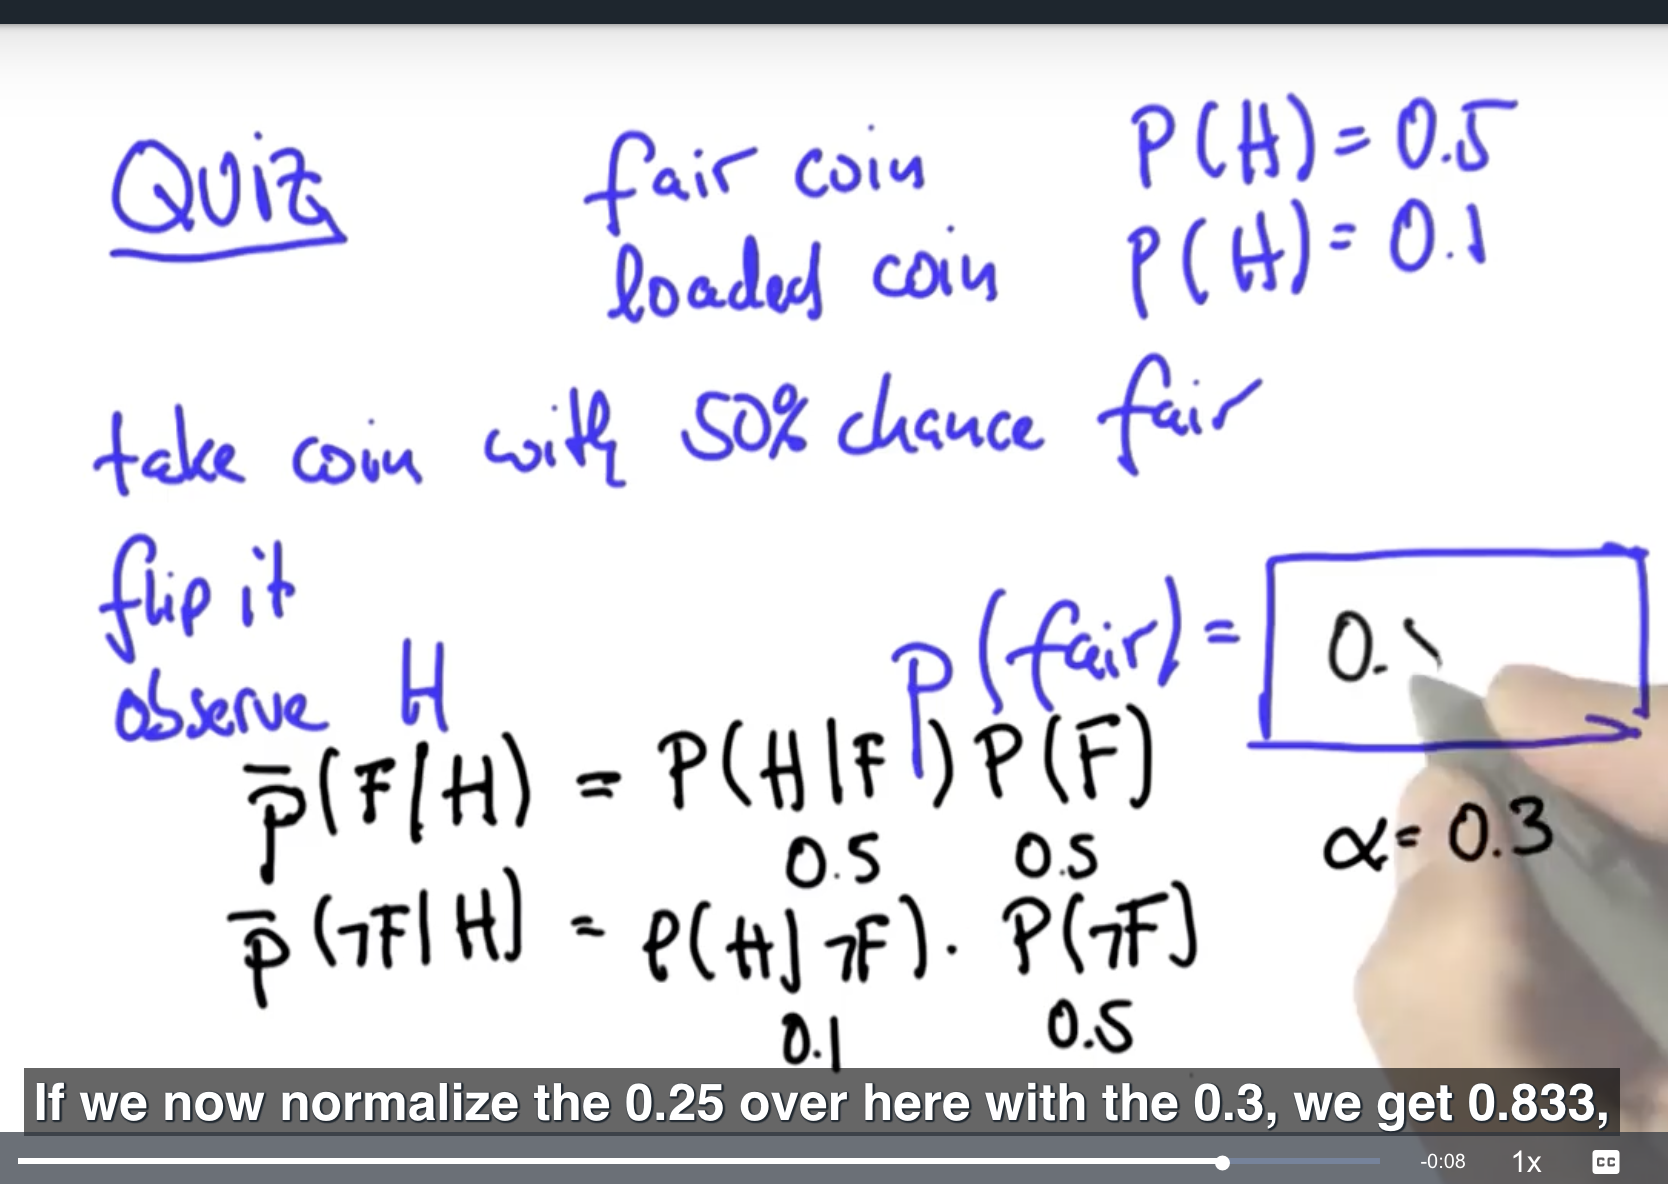 Quiz
fair coin P(H) = 0.5
loaded coin P(H) = 0.1
take coin with 50% chance fair
flip it
observe H
P(fair) = 0.
P̅(F|H) = P(H|F) P(F)
0.5 0.5
α = 0.3
P̅(¬F|H) = P(H|¬F) · P(¬F)
0.1 0.5
If we now normalize the 0.25 over here with the 0.3, we get 0.833,
-0:08 1x CC